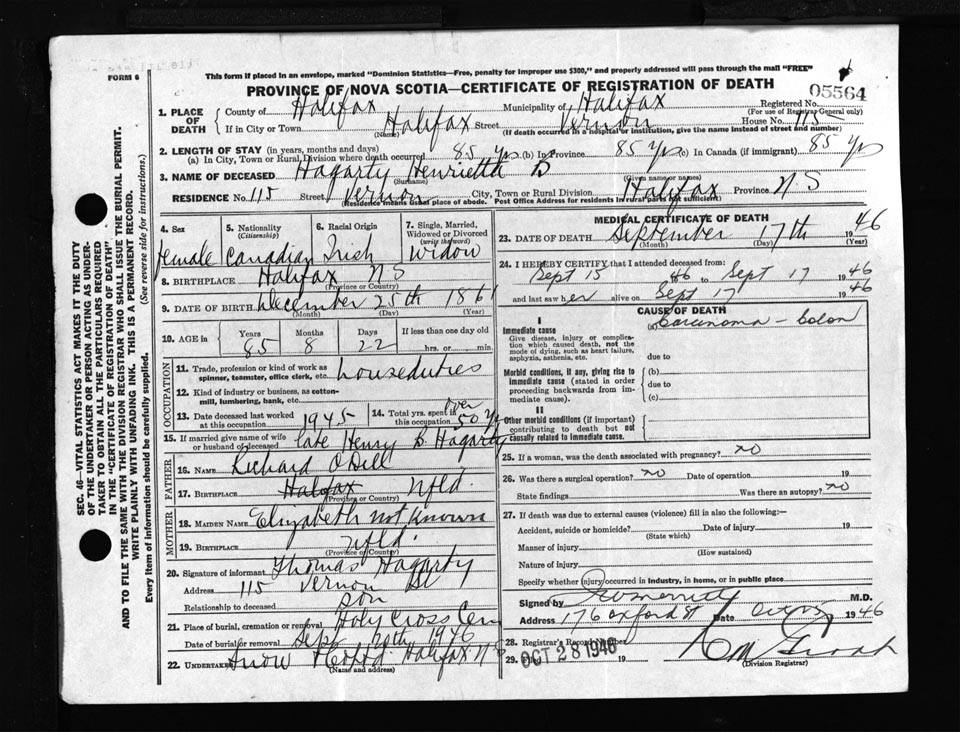 FORM 6
This form if placed in an envelope, marked "Dominion Statistics—Free, penalty for improper use $300," and properly addressed will pass through the mail "FREE"
PROVINCE OF NOVA SCOTIA—CERTIFICATE OF REGISTRATION OF DEATH
05564
1. PLACE OF DEATH
County of Halifax Municipality of Halifax Registered No.
(For use of Registrar General only)
If in City or Town Halifax Street Vernon House No. 115
(Name) (If death occurred in a hospital or institution, give the name instead of street and number)
2. LENGTH OF STAY (in years, months and days)
(a) In City, Town or Rural Division where death occurred 85 yrs (b) In Province 85 yrs (c) In Canada (if immigrant) 85 yrs
3. NAME OF DECEASED Hagarty Henrietta B
(Surname) (Given name or names)
RESIDENCE No. 115 Street Vernon City, Town or Rural Division Halifax Province N.S
(Residence means usual place of abode. Post Office Address for residents in rural parts not sufficient)
4. Sex female
5. Nationality (Citizenship) Canadian
6. Racial Origin Irish
7. Single, Married, Widowed or Divorced (write the word) Widow
8. BIRTHPLACE Halifax N S
(Province or Country)
9. DATE OF BIRTH December 25th 1861
(Month) (Day) (Year)
10. AGE in Years 85 Months 8 Days 22 If less than one day old hrs. or min.
OCCUPATION
11. Trade, profession or kind of work as spinner, teamster, office clerk, etc. houseduties
12. Kind of industry or business, as cotton-mill, lumbering, bank, etc.
13. Date deceased last worked at this occupation 1945
14. Total yrs. spent in this occupation over 50 yrs
15. If married give name of wife or husband of deceased late Henry B. Hagarty
FATHER
16. NAME Richard O'Dell
17. BIRTHPLACE Halifax Nfld.
(Province or Country)
MOTHER
18. MAIDEN NAME Elizabeth not known
19. BIRTHPLACE Nfld.
(Province or Country)
20. Signature of informant Thomas Hagarty
Address 115 Vernon St
Relationship to deceased son
21. Place of burial, cremation or removal Holy Cross Cem
Date of burial or removal Sept 20th 1946
22. Undertaker Snow Halifax N S
(Name and address)
MEDICAL CERTIFICATE OF DEATH
23. DATE OF DEATH September 17th 1946
(Month) (Day) (Year)
24. I HEREBY CERTIFY that I attended deceased from:
Sept 15 46 to Sept 17 1946
and last saw her alive on Sept 17 1946
CAUSE OF DEATH
I
Immediate cause (a) Carcinoma — Colon
Give disease, injury or complication which caused death, not the mode of dying, such as heart failure, asphyxia, asthenia, etc.
due to
Morbid conditions, if any, giving rise to immediate cause (stated in order proceeding backwards from immediate cause).
(b)
due to
(c)
II
Other morbid conditions (if important) contributing to death but not causally related to immediate cause.
25. If a woman, was the death associated with pregnancy? no
26. Was there a surgical operation? no Date of operation 19
State findings Was there an autopsy? no
27. If death was due to external causes (violence) fill in also the following:—
Accident, suicide or homicide? Date of injury 19
(State which)
Manner of injury
(How sustained)
Nature of injury
Specify whether injury occurred in industry, in home, or in public place
Signed by M.D.
Address 176 Oxford St Date 1946
28. Registrar's Record Number
29. Filed OCT 28 1946 19
(Division Registrar)
SEC. 46—VITAL STATISTICS ACT MAKES IT THE DUTY OF THE UNDERTAKER OR PERSON ACTING AS UNDERTAKER TO OBTAIN ALL THE PARTICULARS REQUIRED IN THE "CERTIFICATE OF REGISTRATION OF DEATH" AND TO FILE THE SAME WITH THE DIVISION REGISTRAR WHO SHALL ISSUE THE BURIAL PERMIT.
WRITE PLAINLY WITH UNFADING INK. THIS IS A PERMANENT RECORD.
Every item of information should be carefully supplied. (See reverse side for instructions.)